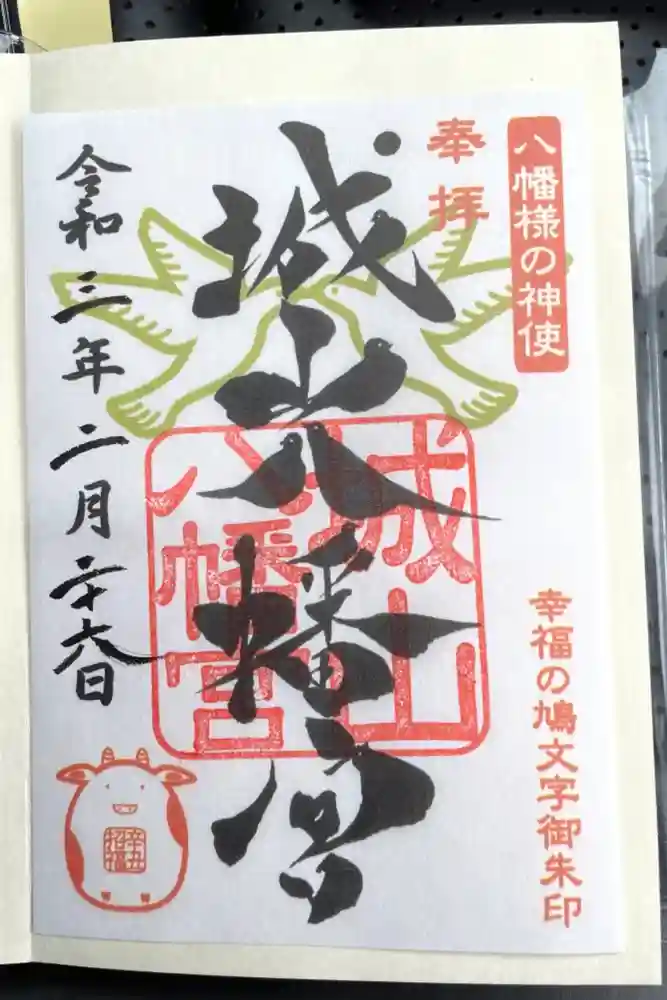 八幡様の神使
幸福の鳩文字御朱印
奉拝
城山八幡宮
城山
八幡宮
令和三年二月二十六日
辛丑
招福